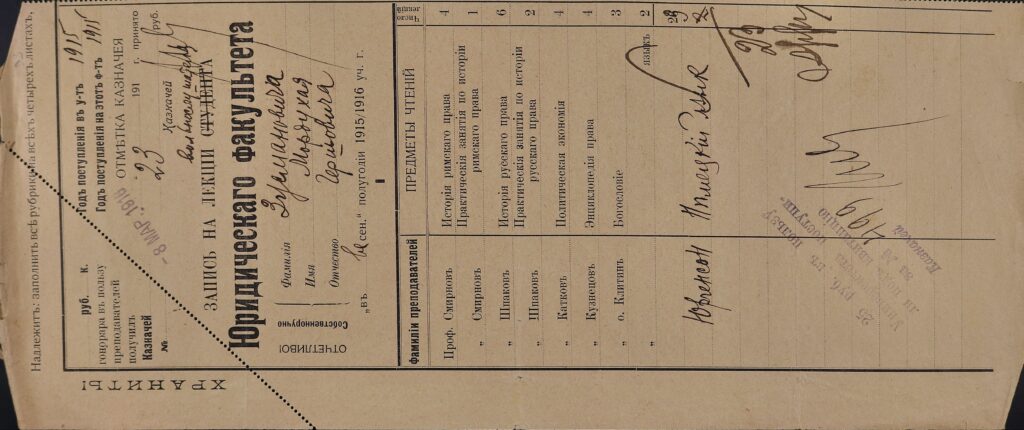 Надлежитъ: заполнить всѣ рубрики на всѣхъ четырехъ листахъ,
ХРАНИТЬ!
Годъ поступленія въ у-тъ 1915
Годъ поступленія на этотъ ф-тъ 1915
руб. к.
гонорара въ пользу
преподавателей
получилъ
Казначей
№
ОТМѢТКА КАЗНАЧЕЯ
191 г. принято
23 руб.
Казначей
- 8 МАР. 1916
ЗАПИСЬ НА ЛЕКЦІИ СТУДЕНТА
Юридическаго факультета
ОТЧЕТЛИВО!
Собственноручно
Фамилія
Имя
Отчество Гершовича
„въ весен.“ полугодіи 1915/1916 уч. г.
Фамиліи преподавателей ПРЕДМЕТЫ ЧТЕНІЙ Число лекцій
Проф. Смирновъ Исторія римскаго права 4
„ Смирновъ Практическія занятія по исторіи римскаго права 1
„ Шпаковъ Исторія русскаго права 6
„ Шпаковъ Практическія занятія по исторіи русскаго права 2
„ Катковъ Политическая экономія 4
„ Кузнецовъ Энциклопедія права 4
„ о. Клитинъ Богословіе 3
„ языкъ 2
23
Юргенсонъ Нѣмецкій языкъ 2
23
25 руб. въ пользу
Казначей